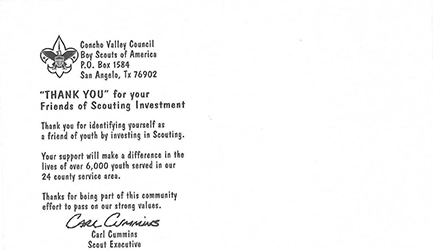 Concho Valley Council
Boy Scouts of America
P.O. Box 1584
San Angelo, Tx 76902
"THANK YOU" for your
Friends of Scouting Investment
Thank you for identifying yourself as
a friend of youth by investing in Scouting.
Your support will make a difference in the
lives of over 6,000 youth served in our
24 county service area.
Thanks for being part of this community
effort to pass on our strong values.
Carl Cummins
Carl Cummins
Scout Executive